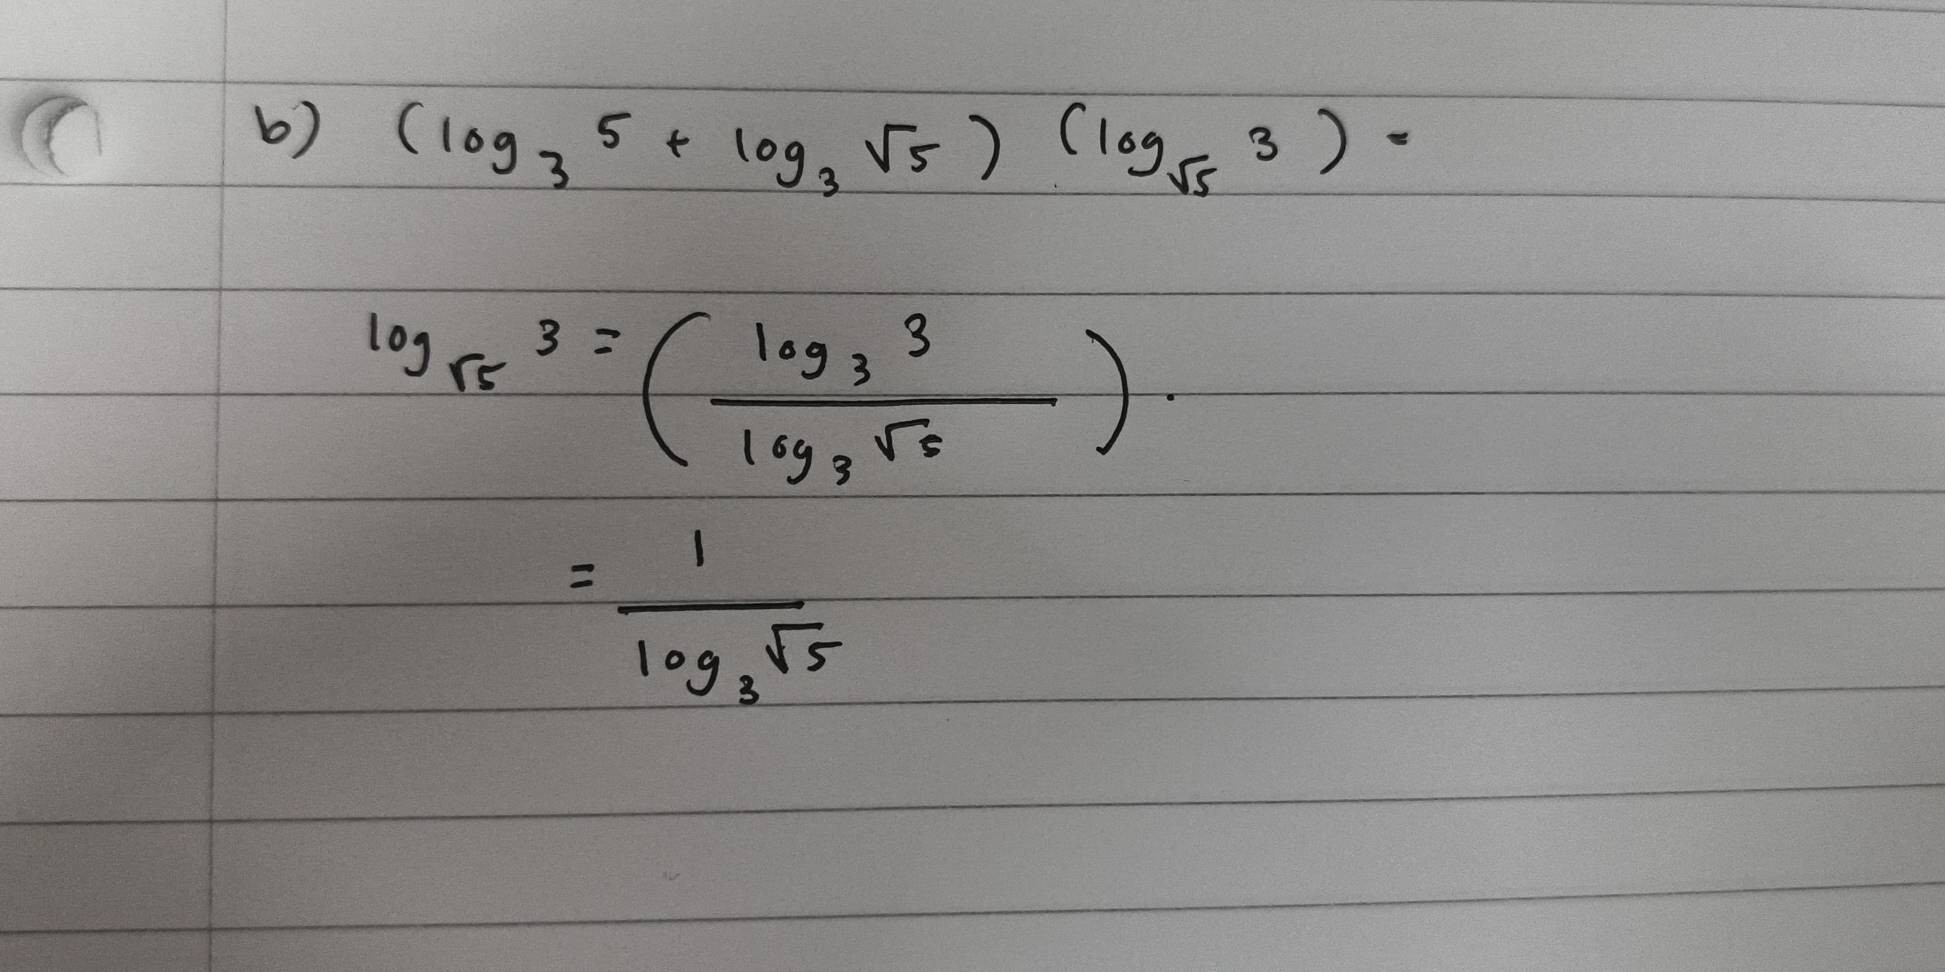 b) (log₃ 5 + log₃ √5) (log_√5 3) =
log_√5 3 = (log₃ 3 / log₃ √5).
= 1 / log₃ √5